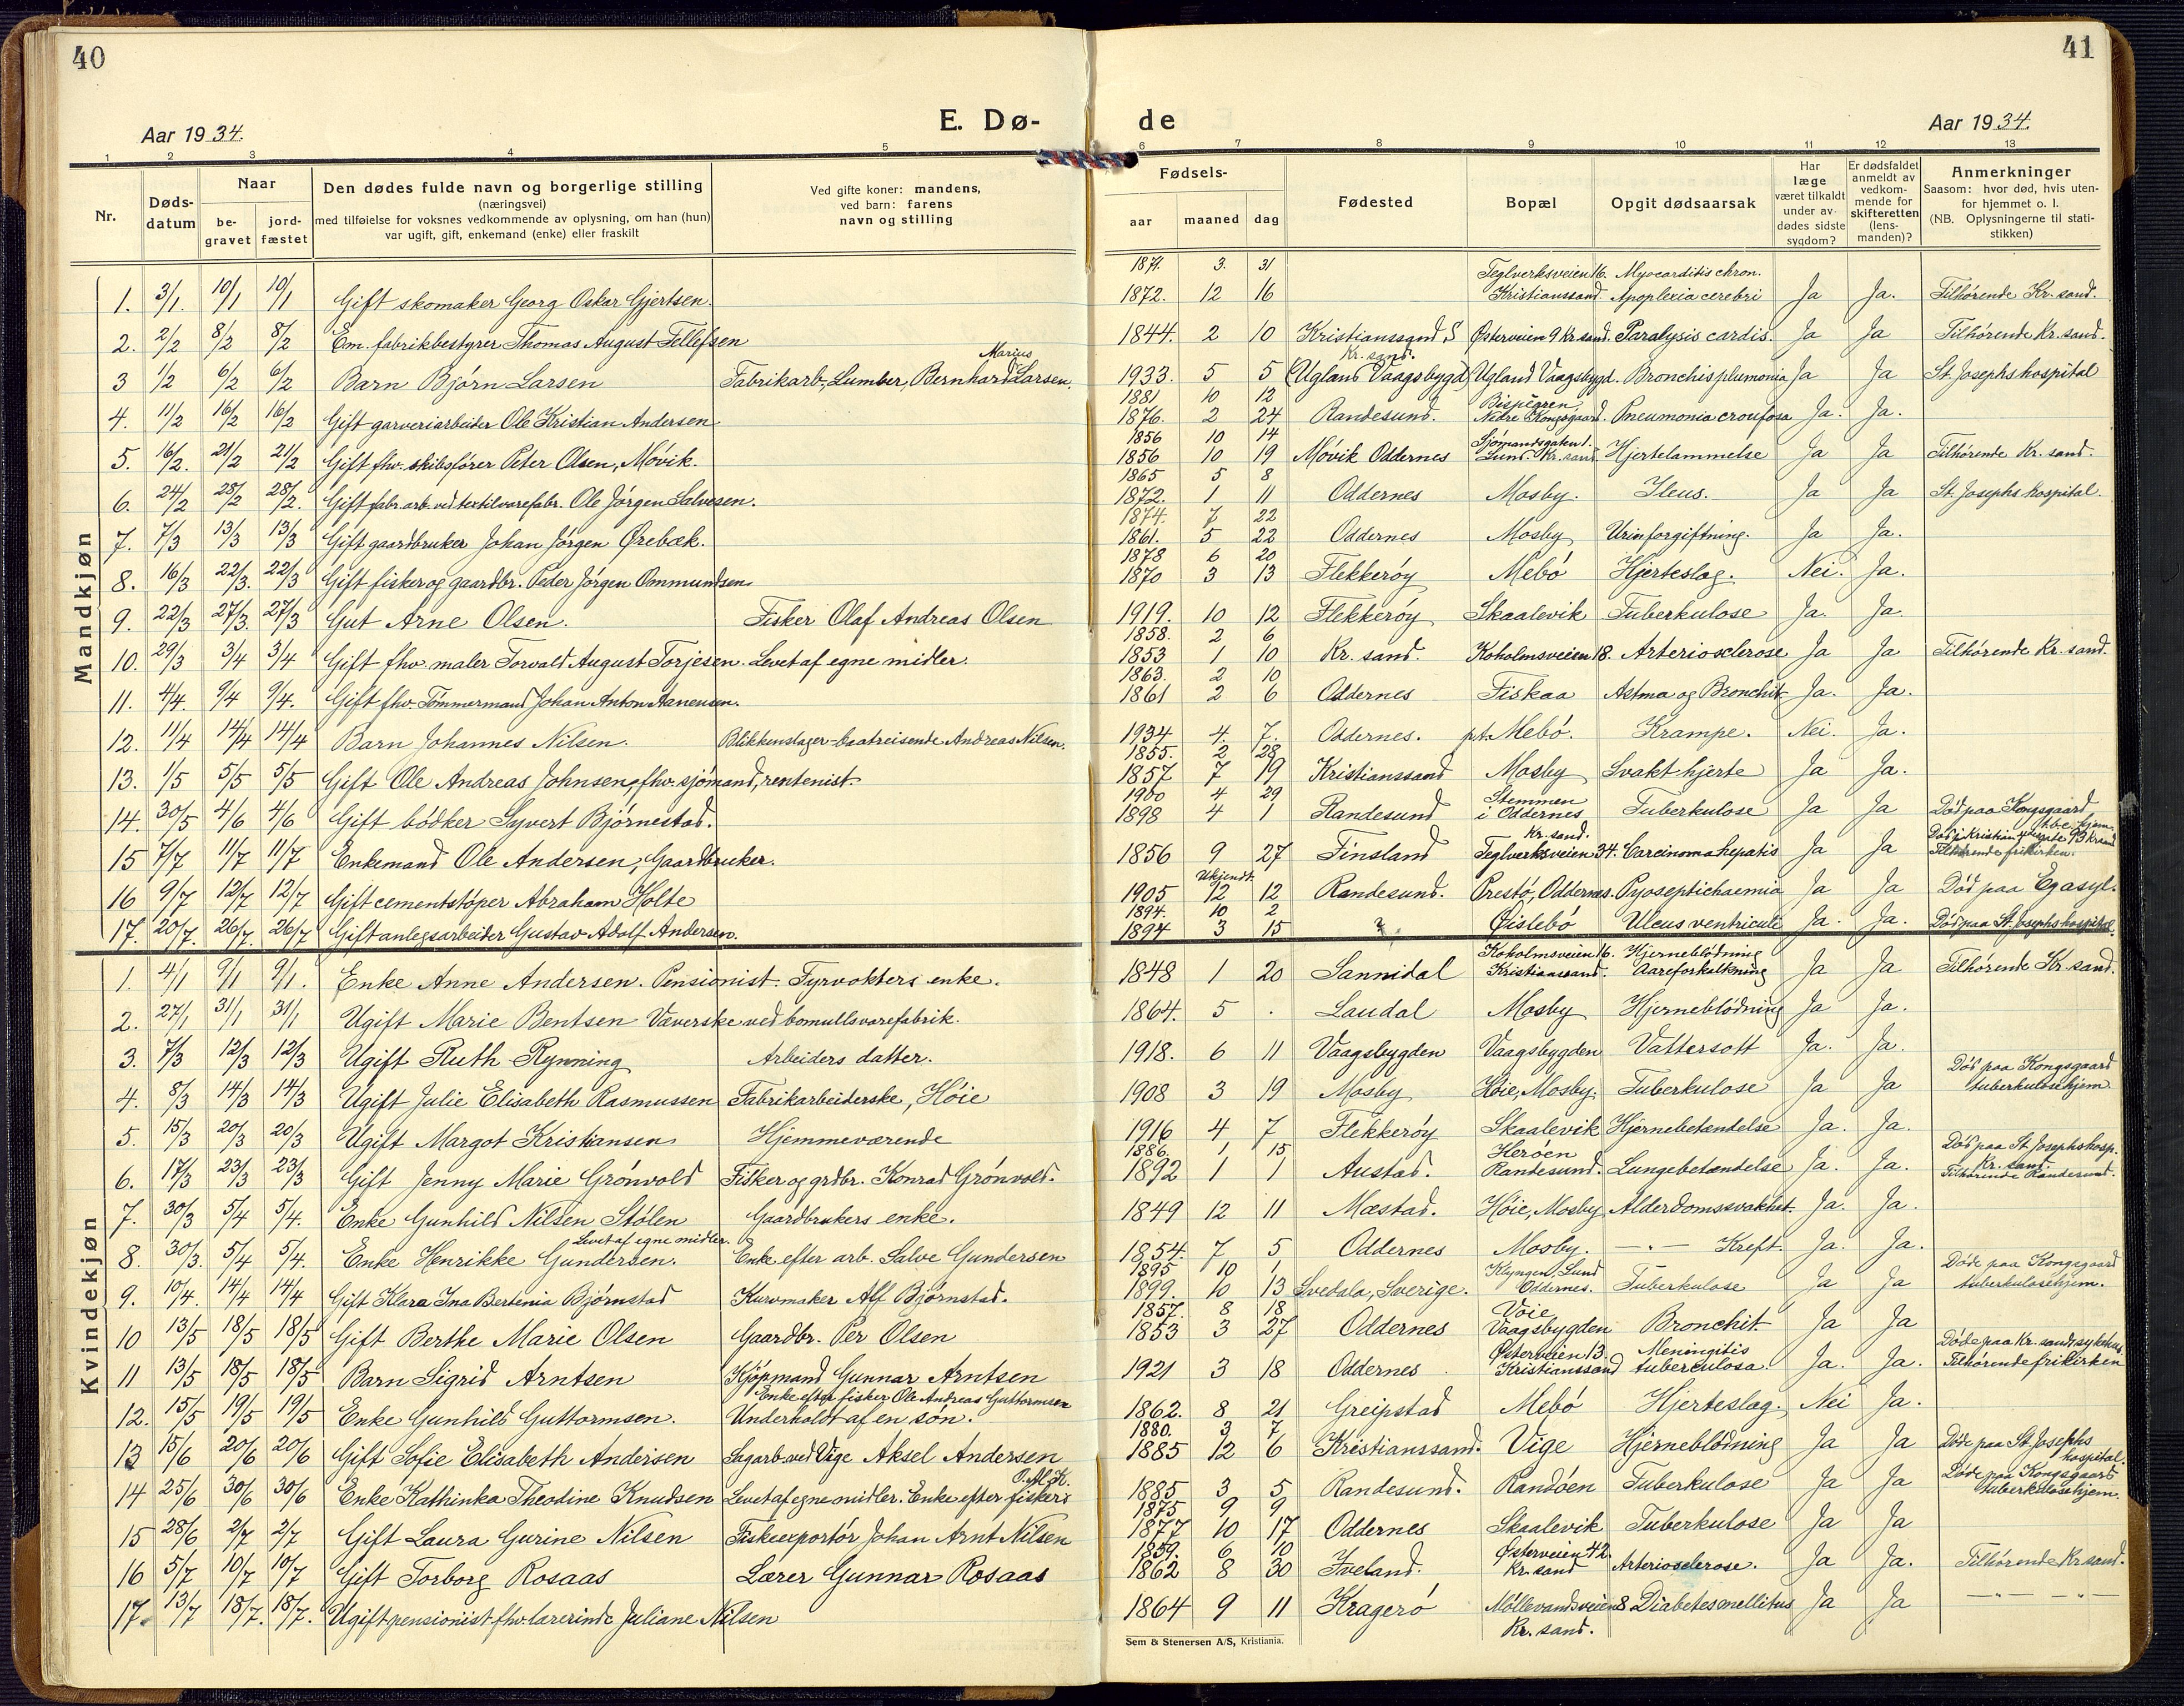 40
41
Aar 1934.
E. Dø-
de
Aar 1934.
1 2 3 4 5 6 7 8 9 10 11 12 13
Nr.
Døds-
datum
Naar
be-
gravet
jord-
fæstet
Den dødes fulde navn og borgerlige stilling
(næringsvei)
med tilføielse for voksnes vedkommende av oplysning, om han (hun)
var ugift, gift, enkemand (enke) eller fraskilt
Ved gifte koner: mandens,
ved barn: farens
navn og stilling
Fødsels-
aar maaned dag
Fødested
Bopæl
Opgit dødsaarsak
Har
læge
været tilkaldt
under av-
dødes sidste
sygdom?
Er dødsfaldet
anmeldt av
vedkom-
mende for
skifteretten
(lens-
manden)?
Anmerkninger
Saasom: hvor død, hvis uten-
for hjemmet o. l.
(NB. Oplysningerne til stati-
stikken)
Mandkjøn
1871. 3. 31 Teglverksveien 16. Myocarditis chron.
1. 3/1. 10/1 10/1 Gift skomaker Georg Oskar Gjertsen. 1872. 12 16 Kristianssand. Apoplexia cerebri Ja Ja. Tilhørende Kr. sand.
2. 2/2 8/2 8/2 Em. fabrikbestyrer Thomas August Tellefsen 1844. 2 10 Kristianssand S Østerveien 9 Kr. sand. Paralysis cardis. Ja Ja Tilhørende Kr. sand.
Marius Kr. sand.
3 1/2 6/2 6/2 Barn Bjørn Larsen Fabrikarb., Lumber, Bernhard Larsen. 1933. 5 5 (Uglans Vaagsbygd) Ugland Vaagsbygd. Bronchisplumonia Ja Ja St. Josephs hospital
1881 10 12 Bispegren
4. 11/2 16/2 16/2 Gift garveriarbeider Ole Kristian Andersen 1876. 2 24 Randesund. Nedre Kongsgaard. Pneumonia croufosa Ja. Ja.
1856 10 14 Sjømandsgaten 1.
5. 16/2. 21/2 21/2 Gift fhv. skibsfører Peter Olsen, Møvik. 1856 10 19 Møvik Oddernes Lund. Kr. sand. Hjertelammelse Ja Ja Tilhørende Kr. sand.
1865 5 8
6. 24/2 28/2 28/2. Gift fabr. arb. ved textilvarefabr. Ole Jørgen Salvesen. 1872. 1 11 Oddernes Mosby. Ileus. Ja Ja St. Josephs hospital.
1874. 7 22
7. 7/3 13/3 13/3 Gift gaardbruker Johan Jørgen Ørebæk. 1861. 5 22 Oddernes Mosby Urinforgiftning. Ja Ja.
1878 6 20
8. 16/3 22/3. 22/3 Gift fisker og gaardbr. Peder Jørgen Ommundsen 1870 3 13 Flekkerøy Mebø Hjerteslag. Nei. Ja.
9. 22/3 27/3. 27/3 Gut Arne Olsen. Fisker Olaf Andreas Olsen 1919. 10 12 Flekkerøy Skaalevik Tuberkulose Ja. Ja.
1858. 2 6
10. 29/3 3/4 3/4 Gift fhv. maler Torvald August Torjesen. Levet af egne midler. 1853 1 10 Kr. sand. Koholmsveien 18. Arteriosclerose Ja Ja Tilhørende Kr. sand.
1863. 2 10
11. 4/4. 9/4 9/4. Gift fhv. Tømmermand Johan Anton Aanensen. 1861 2 6 Oddernes Fiskaa Astma og Bronchit Ja. Ja.
12. 11/4 14/4 14/4 Barn Johannes Nilsen. Blikkenslager-baatreisende Andreas Nilsen. 1934 4. 7. Oddernes. pt. Mebø. Krampe. Nei. Ja.
1855. 2 28
13. 1/5 5/5 5/5 Gift Ole Andreas Johnsen, fhv. sjømand, rentenist 1857 7 19 Kristianssand Mosby Svakt hjerte Ja Ja.
1900 4 29 Stemmen
14. 30/5 4/6 4/6 Gift bødker Syvert Bjørnestad. 1898 4 1 Randesund i Oddernes Tuberkulose Ja Ja Død paa Kongsgaard
Kr. sand. tbc. hjem.
15 7/7 11/7 11/7 Enkemand Ole Andersen, Gaardbruker. 1856 9 27 Finsland Teglverksveien 34. Carcinoma hepatis Ja Ja Tilhørende frikirken.
Ukjendt.
16 9/7 12/7 12/7 Gift cementstøper Abraham Holte 1905 12 12 Randesund. Prestø, Oddernes. Pyoseptichaemia Ja Ja Død paa Egasyl.
1894. 10 2
17. 20/7. 26/7. 26/7 Gift anlegsarbeider Gustav Adolf Andersen. 1894 3 15 ?. Øislebø Ulcus ventriculi Ja. Ja. Død paa St. Josephs hospital.
Kvindekjøn
Koholmsveien 16. Hjerneblødning
1. 4/1 9/1 9/1. Enke Anne Andersen. Pensionist. Fyrvokters enke. 1848 1 20 Sannidal Kristianssand. Aareforkalkning Ja Ja Tilhørende Kr. sand.
2. 27/1 31/1 31/1 Ugift Marie Bentsen Væverske ved bomullsvarefabrik. 1864. 5 . Laudal Mosby Hjerneblødning Ja Ja.
3. 7/3 12/3 12/3 Ugift Ruth Rynning Arbeiders datter. 1918. 6 11 Vaagsbygden Vaagsbygden Vattersott Ja. Ja.
Død paa Kongsgaard
4. 8/3 14/3 14/3 Ugift Julie Elisabeth Rasmussen Fabrikarbeiderske, Høie 1908 3 19 Mosby Høie, Mosby. Tuberkulose Ja Ja tuberkulosehjem
5. 15/3 20/3 20/3 Ugift Margot Kristiansen Hjemmeværende 1916 4 7 Flekkerøy Skaalevik Hjernebetændelse Ja. Ja.
1886. 1 15 Herøen Død paa St. Josephs hosp.
6. 17/3 23/3 23/3 Gift Jenny Marie Grønvold Fisker og grdbr. Konrad Grønvold. 1892 1 1 Austad. Randesund. Lungebetændelse Ja. Ja. Kr. sand.
Tilhørende Randesund.
7. 30/3 5/4 5/4. Enke Gunhild Nilsen Stølen Gaardbrukers enke. 1849 12 11 Mæstad. Høie, Mosby Alderdomssvakhet Ja. Ja.
Levet af egne midler.
8. 30/3. 5/4 5/4. Enke Henrikke Gundersen. Enke efter arb. Salve Gundersen 1854. 7 5 Oddernes Mosby. —〃— Kreft. Ja. Ja.
1895 10 1 Klyngen, Lund Døde paa Kongsgaard
9. 10/4. 14/4 14/4 Gift Klara Ina Bertenia Bjørnstad Kurvmaker Alf Bjørnstad. 1899. 10 13 Svedala, Sverige. Oddernes. Tuberkulose Ja Ja tuberkulosehjem.
1857. 8 18 Voie
10 13/5 18/5 18/5 Gift Berthe Marie Olsen Gaardbr. Per Olsen 1853 3 27 Oddernes Vaagsbygden Bronchit Ja Ja
Østerveien 13. Meningitis Døde paa Kr. sands sykehus.
11 13/5 18/5 18/5 Barn Sigrid Arntsen Kjøpmand Gunnar Arntsen 1921 3 18 Oddernes Kristianssand tuberculosa. Ja. Ja. Tilhørende frikirken
Enke efter fisker Ole Andreas Guttormsen
12. 15/5 19/5 19/5 Enke Gunhild Guttormsen. Underholdt af en søn. 1862. 8 21 Greipstad Mebø Hjerteslag. Nei Ja.
1880. 3 7
13 15/6 20/6 20/6 Gift Sofie Elisabeth Andersen Sagarb. ved Vige Aksel Andersen 1885 12 6 Kristianssand. Vige Hjerneblødning Ja Ja Døde paa St. Josephs
hospital.
Døde paa Kongsgaard
14 25/6 30/6 30/6 Enke Kathinka Theodine Knudsen Levet af egne midler. Enke efter fisker 1885 3 5 Randesund. Randøen Tuberkulose Ja Ja tuberkulosehjem.
1875 9 9
15 28/6 2/7 2/7 Gift Laura Gurine Nilsen Fiskeexportør Johan Arnt Nilsen 1877 10 17 Oddernes Skaalevik Tuberkulose Ja Ja
1859. 6 10 Østerveien 42.
16 5/7 10/7 10/7 Gift Torborg Rosaas Lærer Gunnar Rosaas 1862 8 30 Iveland. Kr. sand Arteriosclerose. Ja Ja. Tilhørende Kr. sand.
17. 13/7 18/7. 18/7. Ugift pensionist fhv. lærerinde Juliane Nilsen 1864 9 11 Kragerø Møllevandsveien 8 Diabetes mellitus Ja Ja —〃— —〃—
Kr. sand.
Sem & Stenersen A/S, Kristiania.